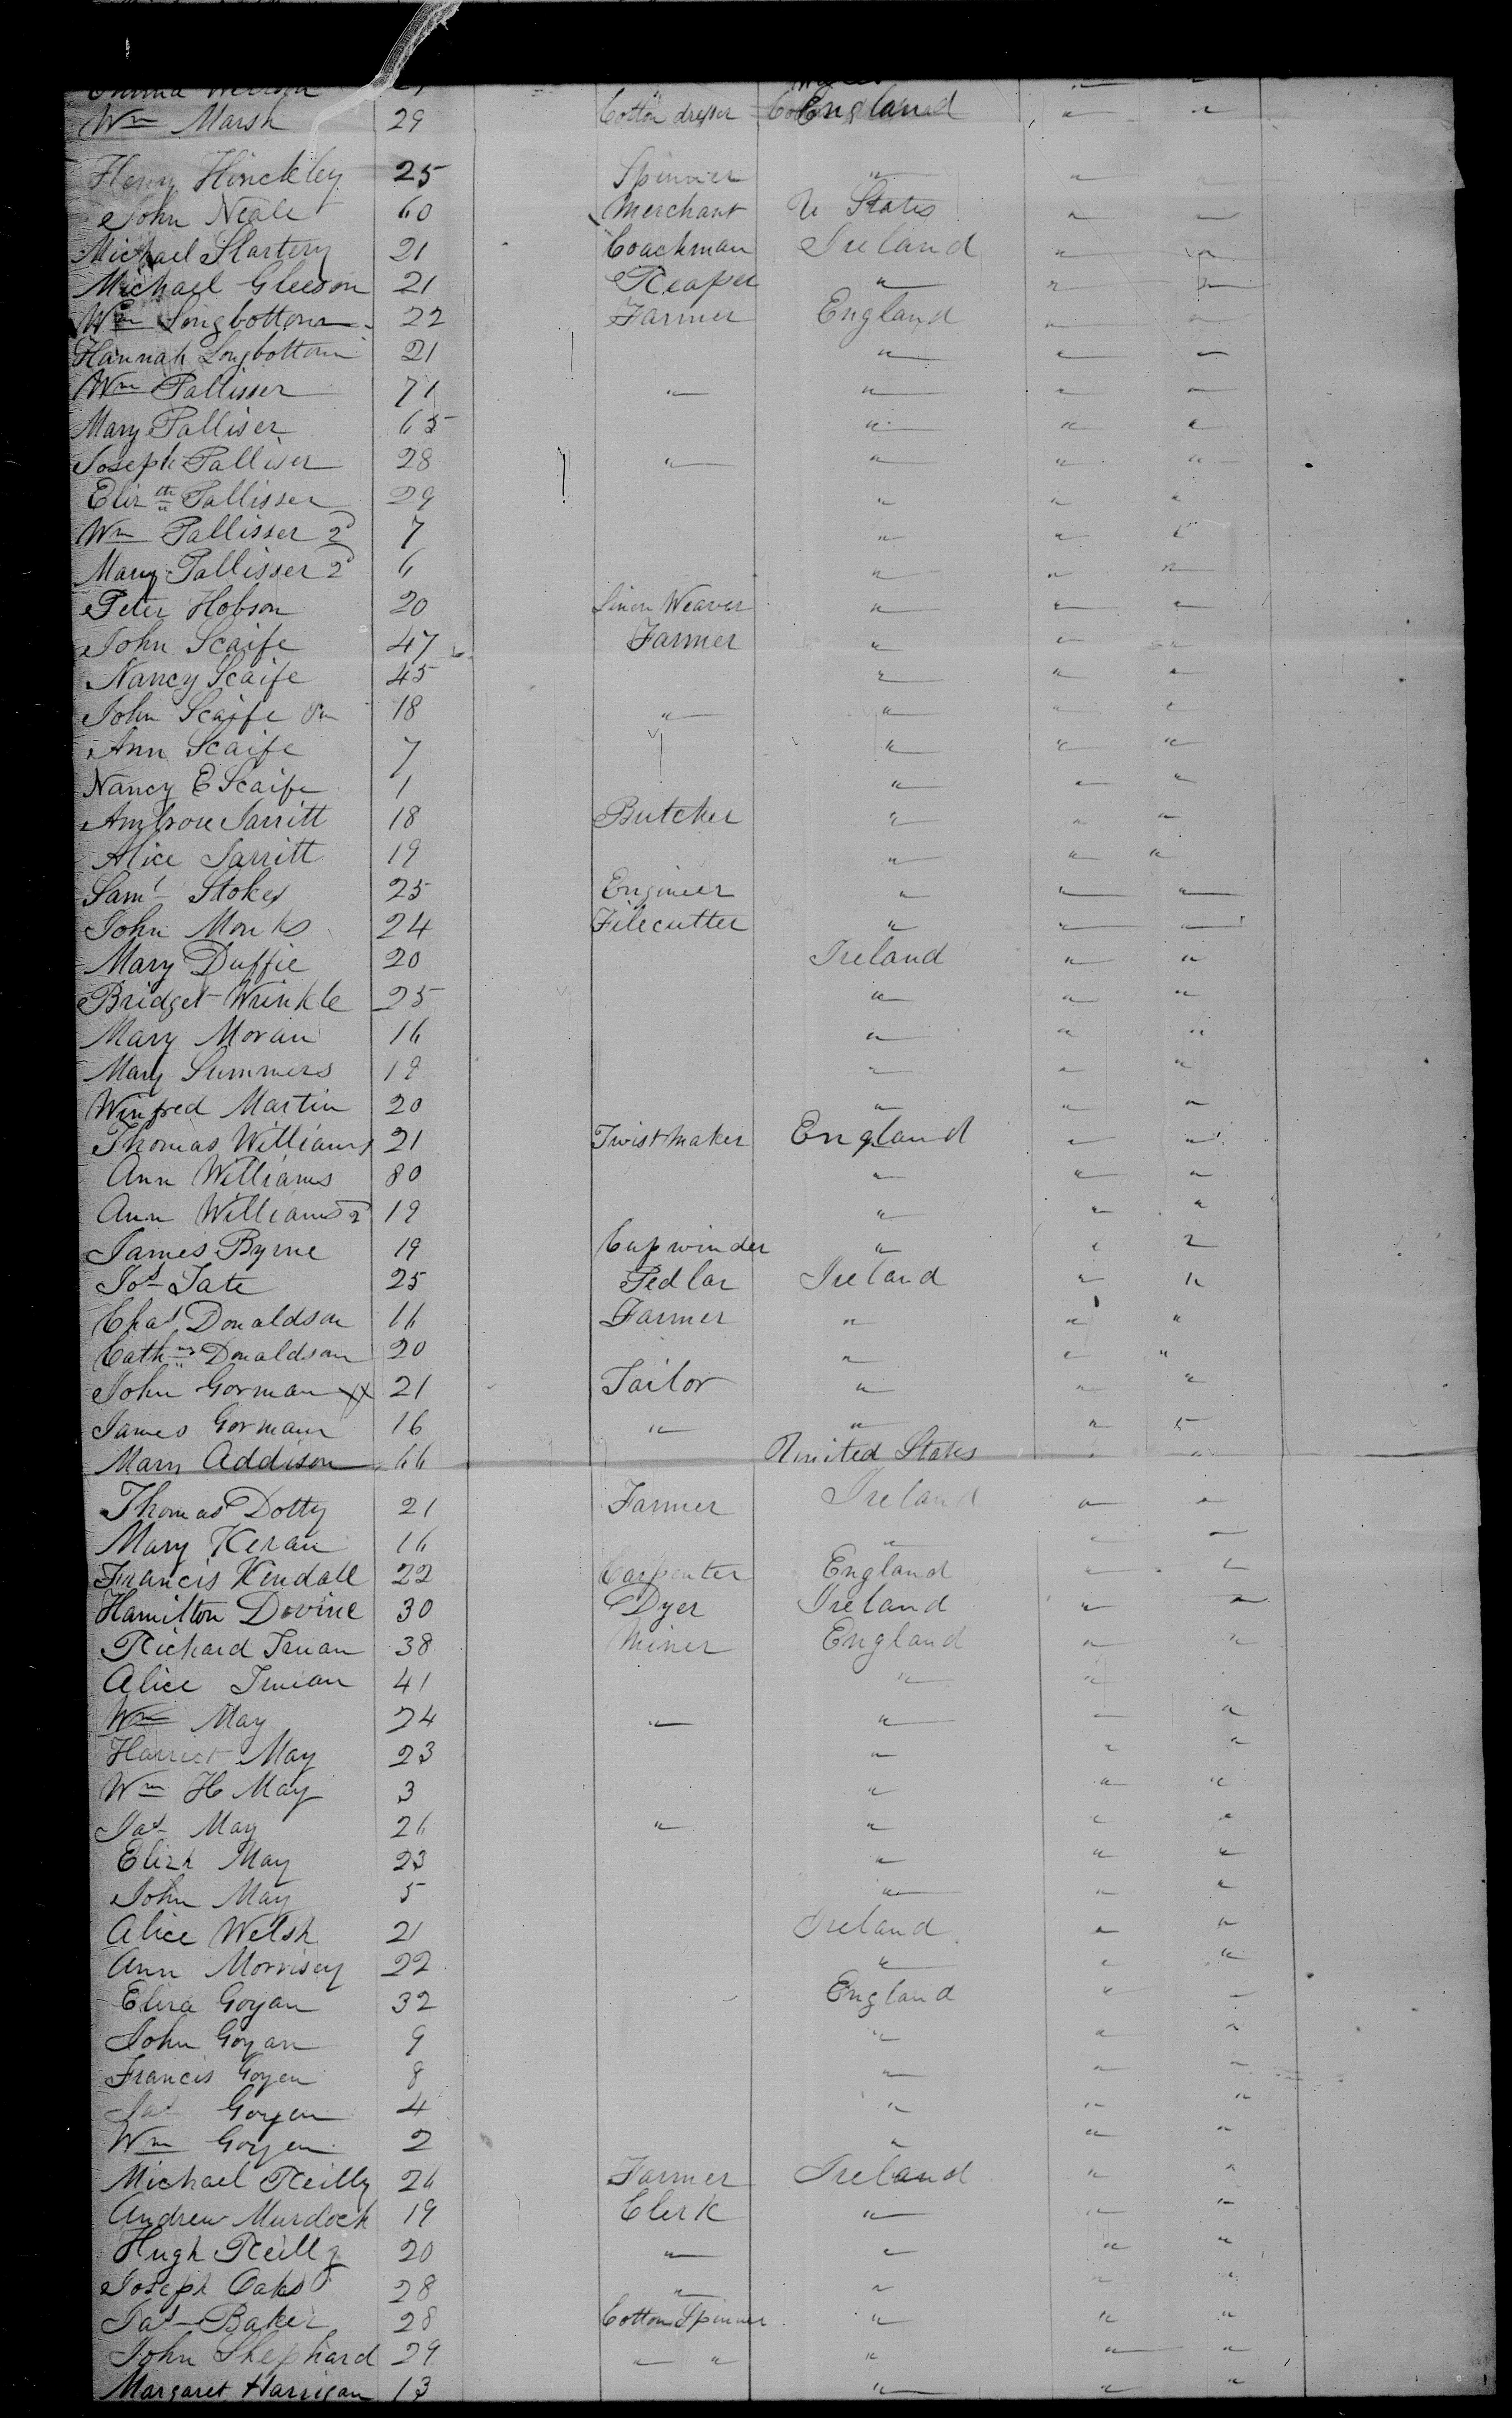 Wm Marsh 29 Cotton dresser England " "
Henry Hinckley 25 Spinner " " "
John Neale 60 Merchant U States " "
Michael Slattery 21 Coachman Ireland " "
Michael Gleeson 21 Reaper " " "
Wm Longbottom 22 Farmer England " "
Hannah Longbottom 21 " " "
Wm Pallisser 71 " " " "
Mary Palliser 65 " " "
Joseph Palliser 28 " " " "
Elizth Pallisser 29 " " "
Wm Pallisser 2d 7 " " "
Mary Pallisser 2d 6 " " "
Peter Hobson 20 Linen Weaver " " "
John Scaife 47 Farmer " " "
Nancy Scaife 45 " " "
John Scaife Jun 18 " " " "
Ann Scaife 7 " " "
Nancy E Scaife 1 " " "
Ambrose Jarritt 18 Butcher " " "
Alice Jarritt 19 " " "
Saml Stokes 25 Engineer " " "
John Monks 24 Filecutter " " "
Mary Duffie 20 Ireland " "
Bridget Wrinkle 25 " " "
Mary Moran 16 " " "
Mary Summers 19 " " "
Winfred Martin 20 " " "
Thomas Williams 21 Twist maker England " "
Ann Williams 80 " " "
Ann Williams 2d 19 " " "
James Byrne 19 Cap winder " " "
Jos Tate 25 Pedlar Ireland " "
Chas Donaldson 16 Farmer " " "
Cathne Donaldson 20 " " "
John Gorman 21 Tailor " " "
James Gorman 16 " " " "
Mary Addison 66 United States " "
Thomas Dotty 21 Farmer Ireland " "
Mary Keran 16 " " "
Francis Kendall 22 Carpenter England " "
Hamilton Devine 30 Dyer Ireland " "
Richard 38 Miner England " "
Alice 41 " "
Wm May 24 " " " "
Harriet May 23 " " "
Wm H May 3 " " "
Jas May 26 " " " "
Elizh May 23 " " "
John May 5 " " "
Alice Welsh 21 Ireland " "
Ann Morrisey 22 " " "
Eliza Goyan 32 England " "
John Goyan 9 " " "
Francis Goyen 8 " " "
Jas Goyen 4 " " "
Wm Goyen 2 " " "
Michael Reilly 26 Farmer Ireland " "
Andrew Murdock 19 Clerk " " "
Hugh Reilly 20 " " " "
Joseph Oaks 28 " " " "
Jas Baker 28 Cotton Spinner " " "
John Shephard 29 " " " " "
Margaret Harrigan 13 " " "